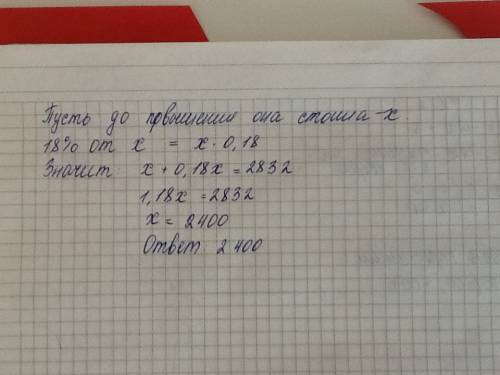 Пусть до повышения она стоила - x.
18% от x = x · 0,18
Значит: x + 0,18x = 2832
1,18x = 2832
x = 2400
Ответ: 2 400